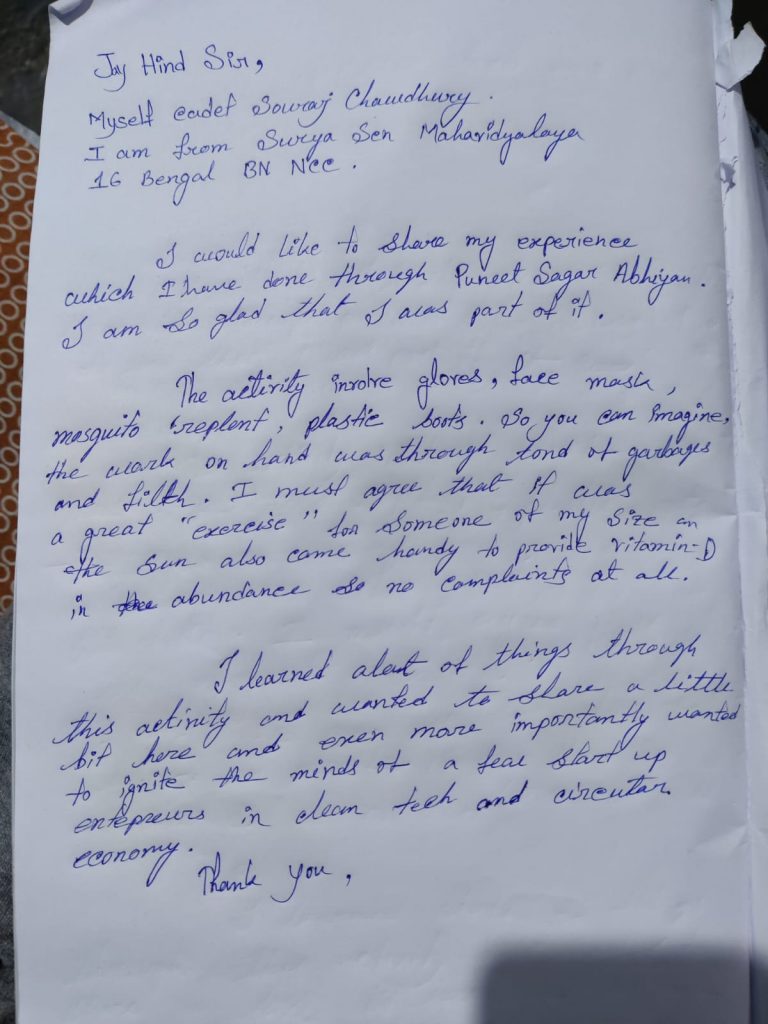 Jay Hind Sir,
Myself cadet Souraj Chawdhury.
I am from Surya Sen Mahavidyalaya
16 Bengal BN NCC.
I would like to share my experience
which I have done through Puneet Sagar Abhiyan.
I am so glad that I was part of it.
The activity involve gloves, face mask,
mosquito replent, plastic boots. So you can imagine,
the work on hand was through tond of garbages
and filth. I must agree that it was
a great "exercise" for someone of my size an
the sun also came handy to provide vitamin-D
in abundance so no complaints at all.
I learned alout of things through
this activity and wanted to share a little
bit here and even more importantly wanted
to ignite the minds of a few start up
entepreurs in clean tech and circular
economy.
Thank you,